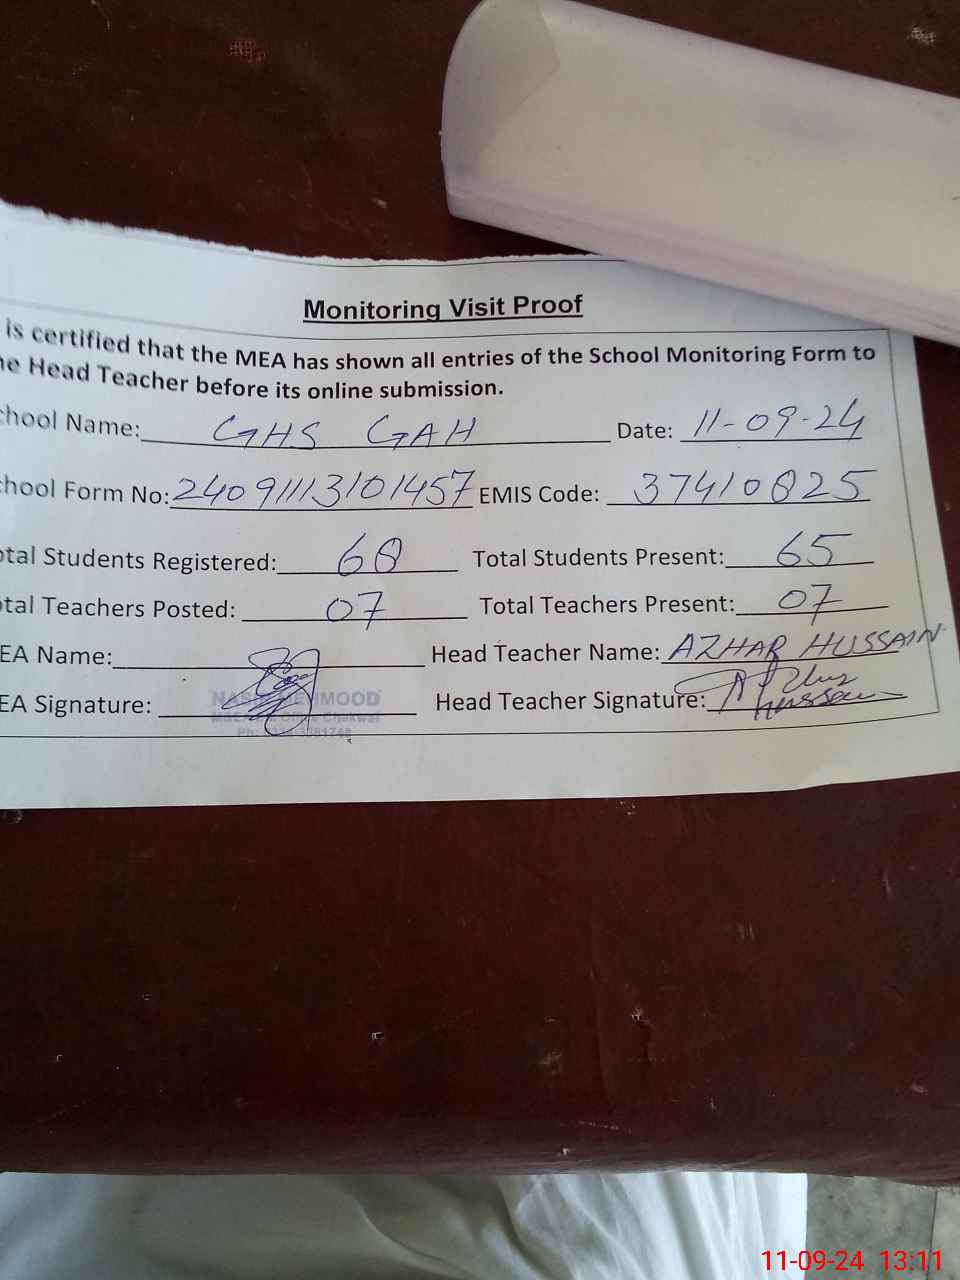 Monitoring Visit Proof
is certified that the MEA has shown all entries of the School Monitoring Form to
he Head Teacher before its online submission.
chool Name: GHS GAH Date: 11-09-24
chool Form No: 24091113101457 EMIS Code: 37410825
otal Students Registered: 68 Total Students Present: 65
otal Teachers Posted: 07 Total Teachers Present: 07
EA Name: Head Teacher Name: AZHAR HUSSAIN
EA Signature: MEHMOOD Head Teacher Signature: Azhar Hussain
11-09-24 13:11